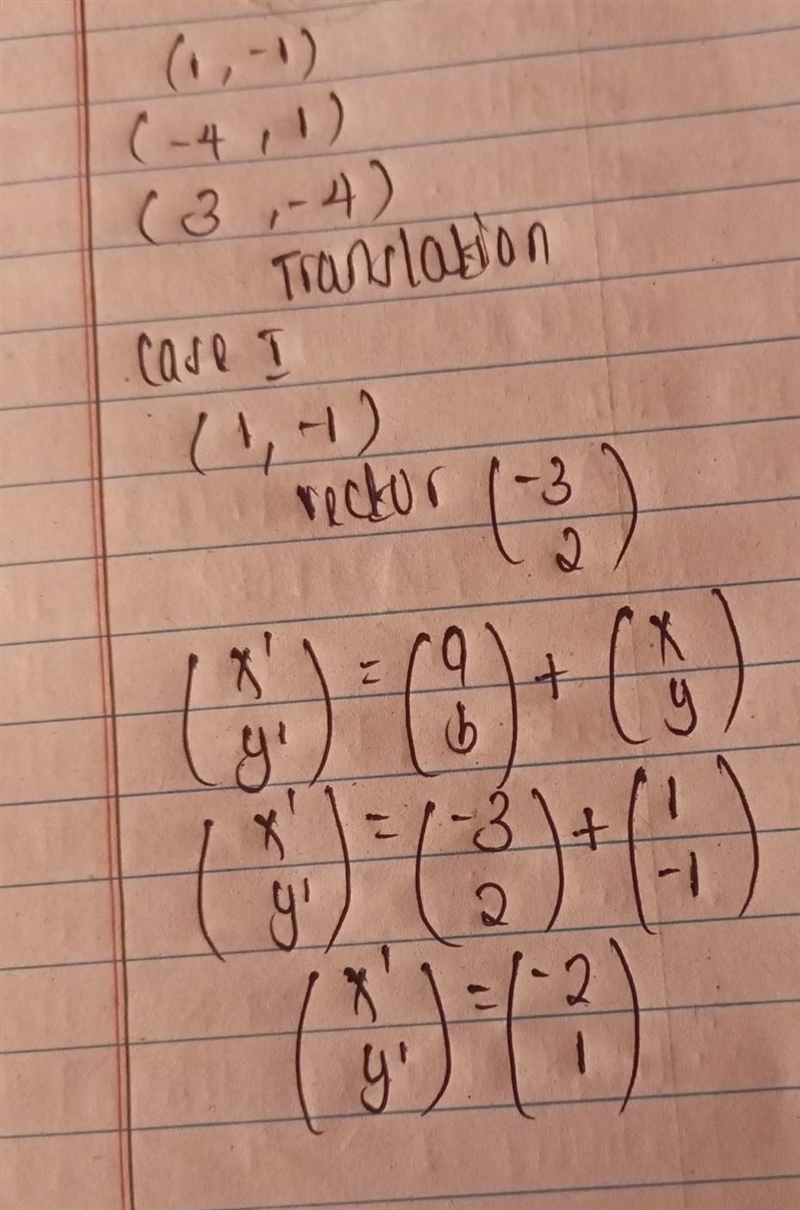 (1, -1)
(-4, 1)
(3, -4)
Translation
Case I
(1, -1)
vector (-3
2)
(x' y') = (a b) + (x y)
(x' y') = (-3 2) + (1 -1)
(x' y') = (-2 1)